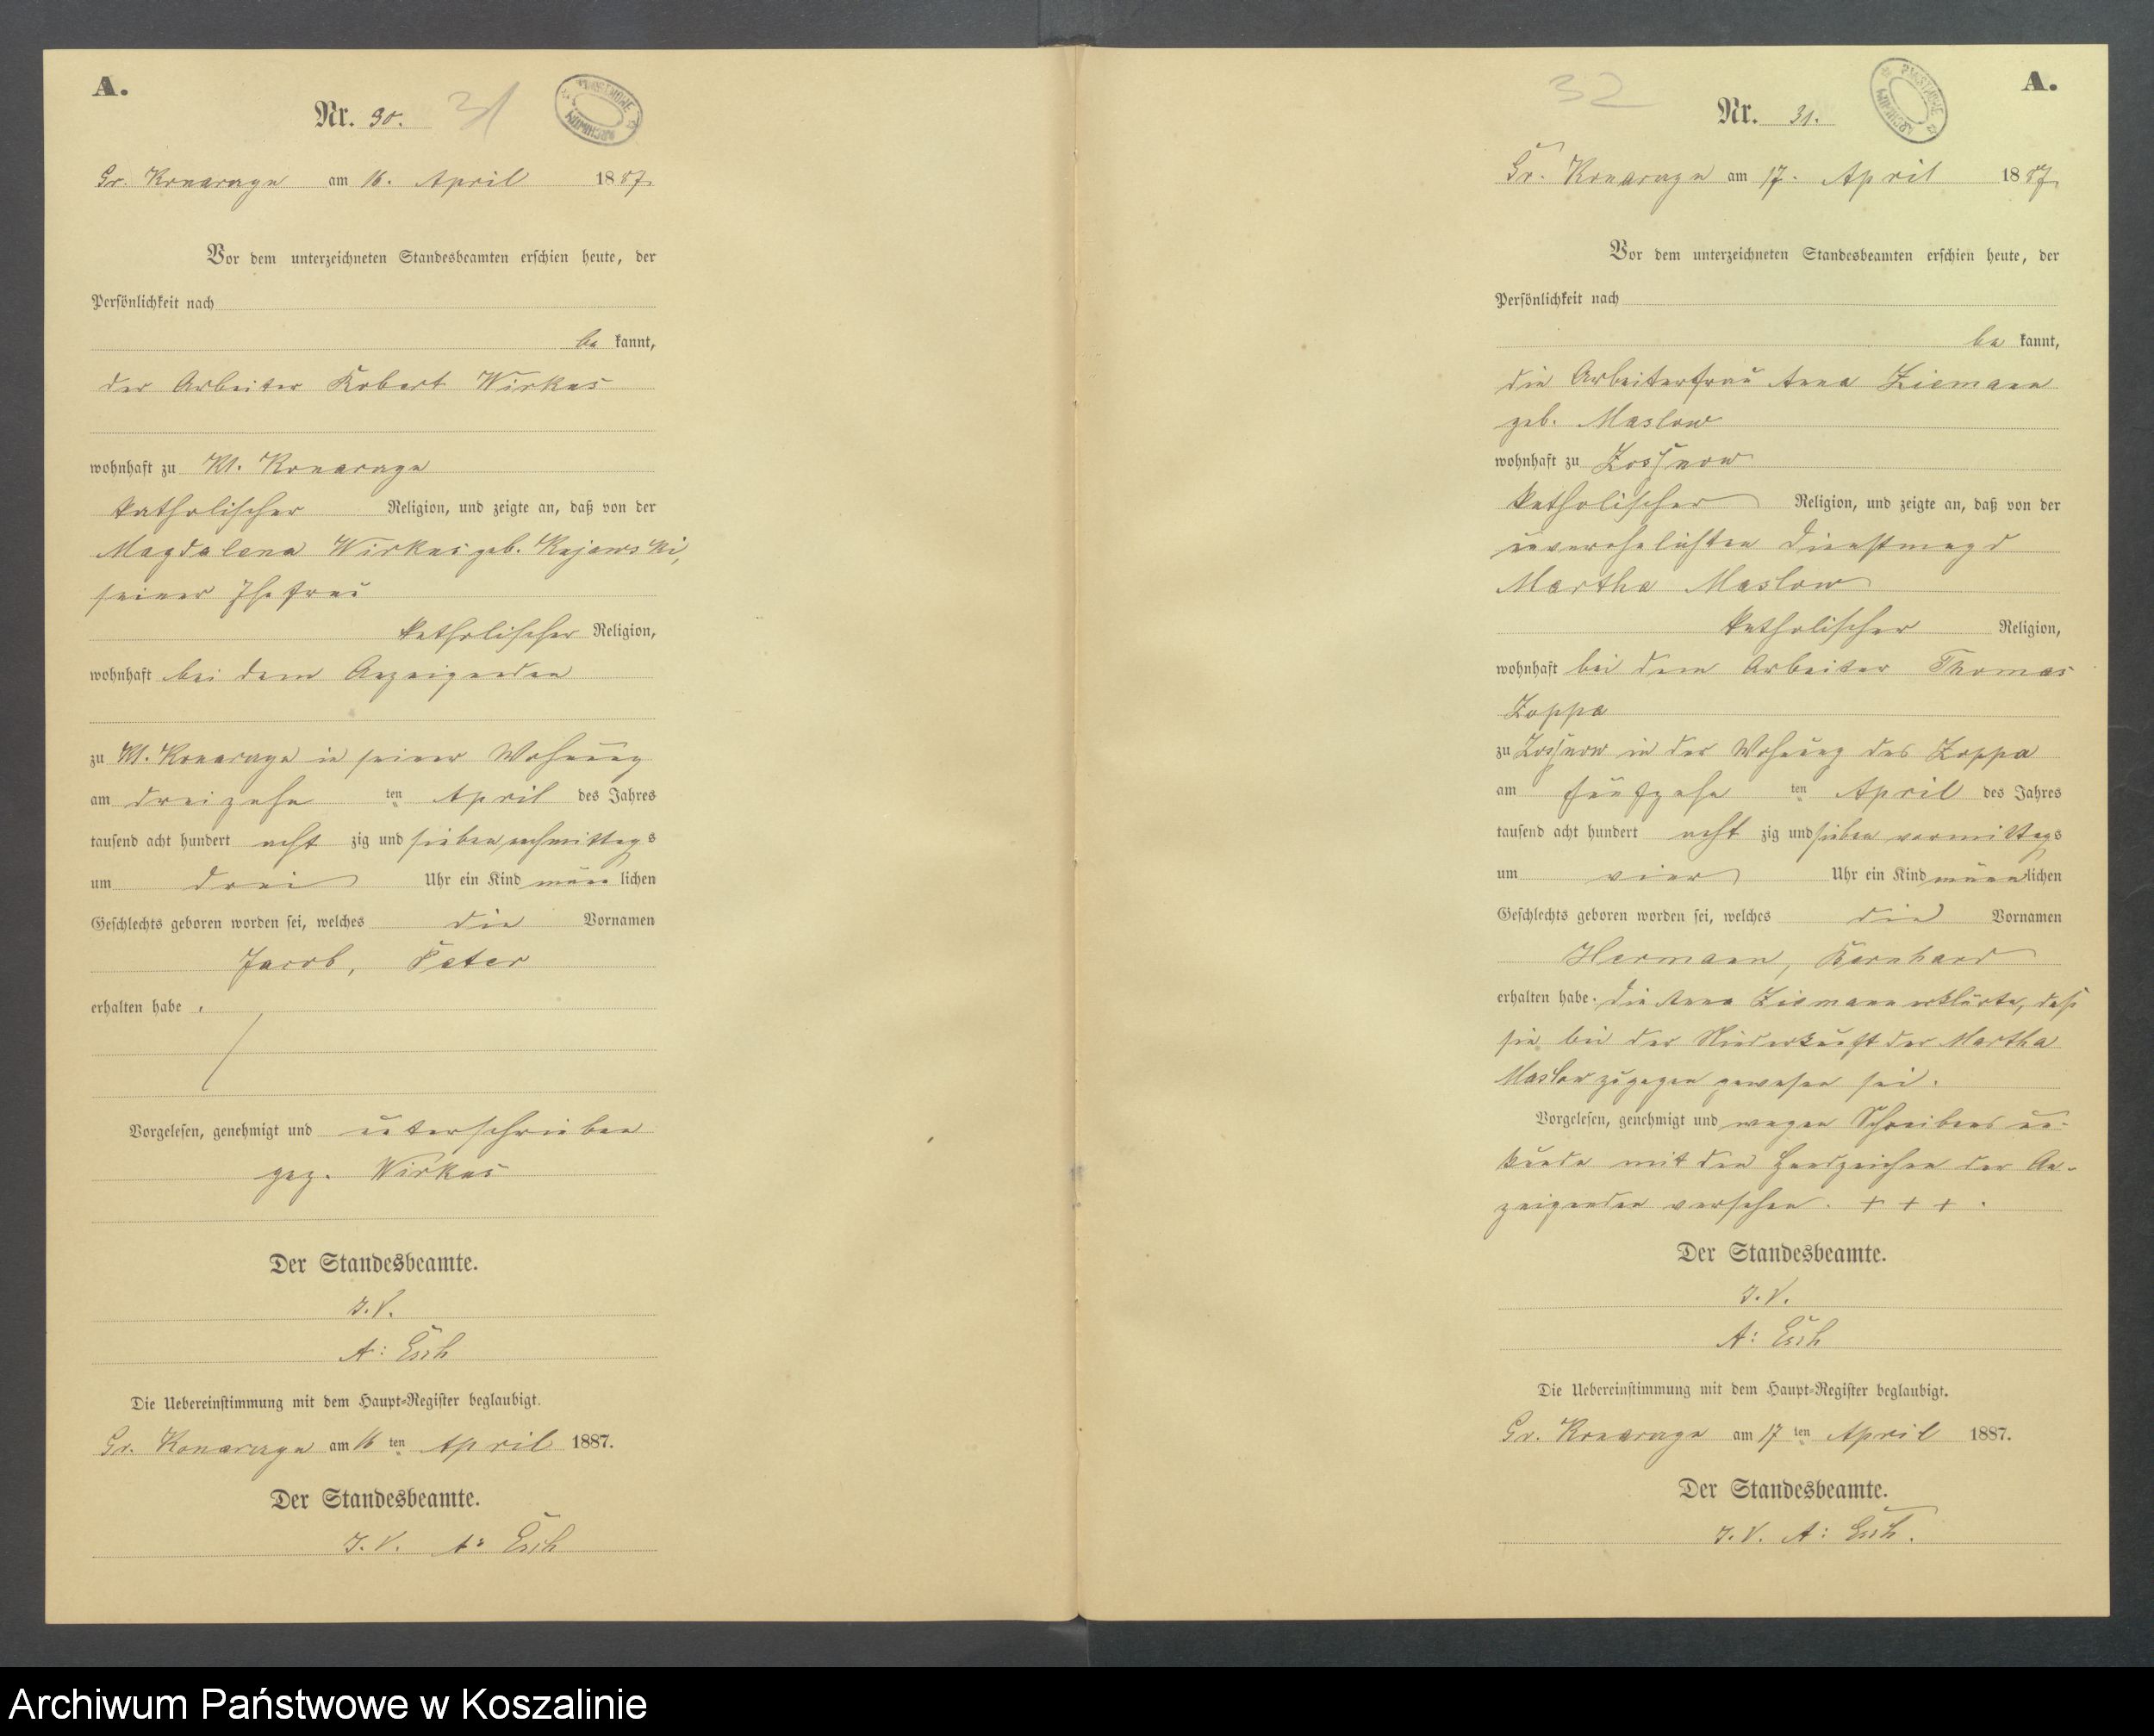 A.
Nr. 30.
31
ARCHIWUM PAŃSTWOWE
Gr. Konarzyn am 16. April 1887
Vor dem unterzeichneten Standesbeamten erschien heute, der
Persönlichkeit nach
be kannt,
der Arbeiter Robert Wirkus
wohnhaft zu Kl. Konarzyn
katholischer Religion, und zeigte an, daß von der
Magdalena Wirkus geb. Kujawski,
seiner Ehefrau
katholischer Religion,
wohnhaft bei dem Anzeigenden
zu Kl. Konarzyn in seiner Wohnung
am dreizehn ten April des Jahres
tausend acht hundert acht zig und sieben nachmittags
um drei Uhr ein Kind männ lichen
Geschlechts geboren worden sei, welches die Vornamen
Jacob, Peter
erhalten habe .
Vorgelesen, genehmigt und unterschrieben
gez. Wirkus
Der Standesbeamte.
J. V.
A: Esch
Die Uebereinstimmung mit dem Haupt-Register beglaubigt.
Gr. Konarzyn am 16 ten April 1887.
Der Standesbeamte.
J. V. A: Esch
A.
32
Nr. 31.
ARCHIWUM PAŃSTWOWE
Gr. Konarzyn am 17. April 1887
Vor dem unterzeichneten Standesbeamten erschien heute, der
Persönlichkeit nach
be kannt,
die Arbeiterfrau Anna Ziemann
geb. Maslow
wohnhaft zu Zossnow
katholischer Religion, und zeigte an, daß von der
unverehelichten Dienstmagd
Martha Maslow
katholischer Religion,
wohnhaft bei dem Arbeiter Thomas
Zoppa
zu Zossnow in der Wohnung des Zoppa
am fünfzehn ten April des Jahres
tausend acht hundert acht zig und sieben vormittags
um vier Uhr ein Kind männ lichen
Geschlechts geboren worden sei, welches die Vornamen
Hermann, Bernhard
erhalten habe. Die Anna Ziemann erklärte, daß
sie bei der Niederkunft der Martha
Maslow zugegen gewesen sei.
Vorgelesen, genehmigt und wegen Schreibens un-
kunde mit den Handzeichen der An-
zeigenden versehen. + + + .
Der Standesbeamte.
J. V.
A: Esch
Die Uebereinstimmung mit dem Haupt-Register beglaubigt.
Gr. Konarzyn am 17 ten April 1887.
Der Standesbeamte.
J. V. A: Esch.
Archiwum Państwowe w Koszalinie